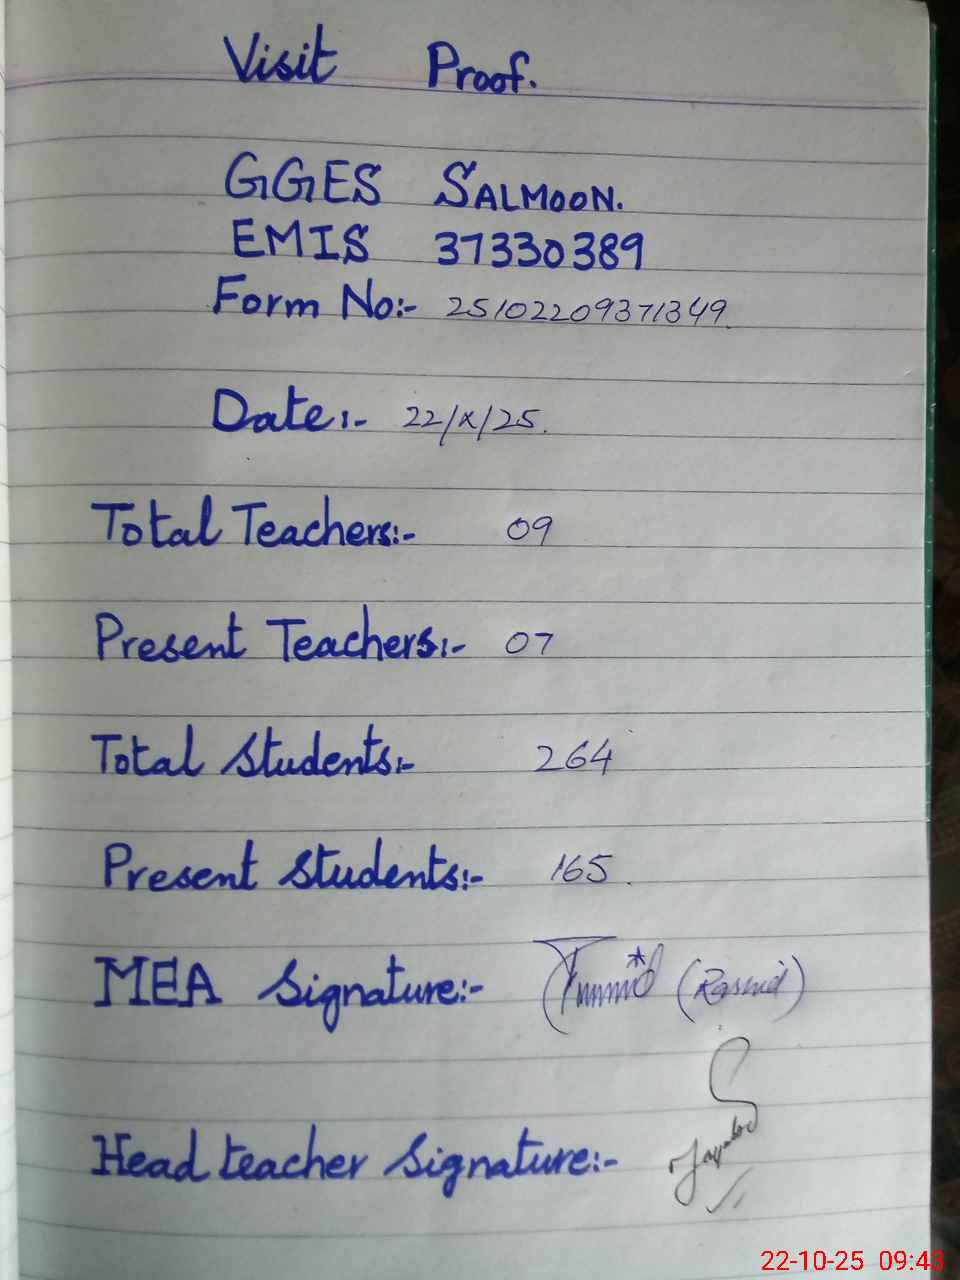 Visit Proof.
GGES SALMOON.
EMIS 37330389
Form No:- 25102209371349
Date:- 22/X/25.
Total Teachers:- 09
Present Teachers:- 07
Total Students:- 264
Present Students:- 165.
MEA Signature:- (Rashid)
Head teacher Signature:-
22-10-25 09:43